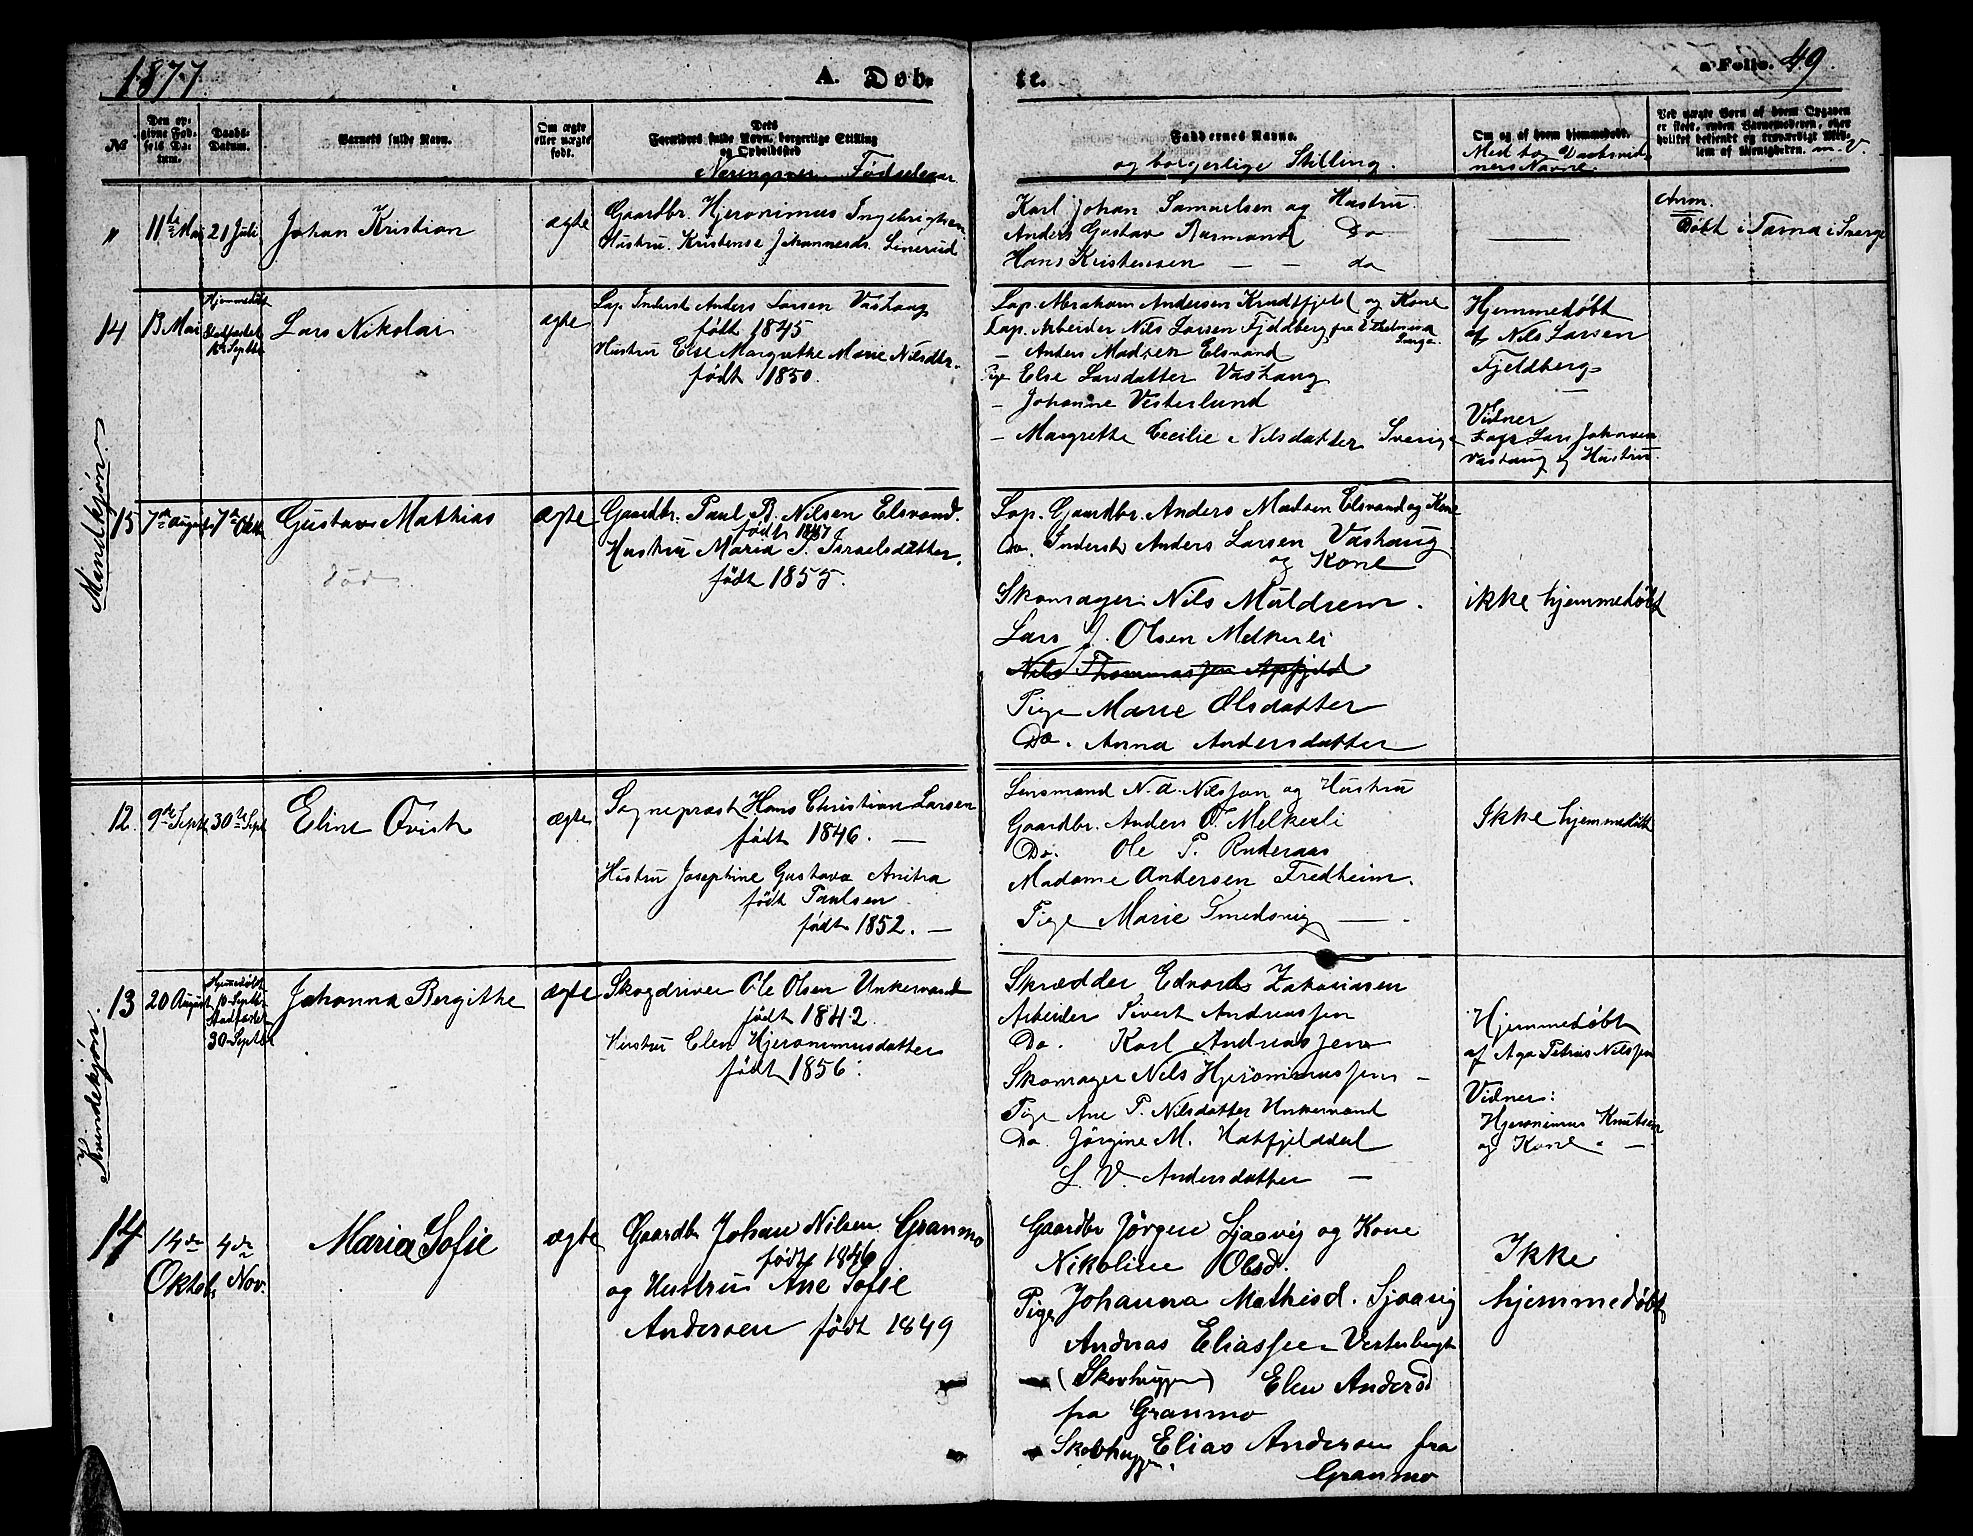 1877
A. Døb-
te.
a Folio. 49.
No
Den op-
givne Fød-
sels Da-
tum.
Daabs-
Datum.
Barnets fulde Navn.
Om ægte
eller uægte
født.
Dets
Forældres fulde Navn, borgerlige Stilling
og Opholdssted
Fødselsaar
Faddernes Navne.
og borgerlige Stilling.
Om og af hvem hjemmedøbt.
Med to Daabsvid-
ners Navne.
Ved uægte Børn af hvem Opgaven
er skeet, enten Barnemoderen, eller
hvilket bekjendt og troværdigt Med-
lem af Menigheden. m. V.
Mandkjøn.
" 11te Mai 21 Juli Johan Kristian ægte
Gaardbr. Hjeronimus Ingebrigtsen
Hustru. Kristense Johannesdr.
Karl Johan Samuelsen og Hustru
Anders Gustav Do
Hans Kristensen — — do
Anm.
Døbt i Tarna i Sverge
14 13 Mai
Hjemmedøbt
Stadfæstet
Septbr
Lars Nikolai ægte
Lap. Inderst Anders Larsen Vashaug
født 1845
Hustru Else Margrethe Marie Nilsdtr.
født 1850.
Lap. Abraham Andersen Krudtfjeld og Kone
Lap. Arbeider Nils Larsen Fjeldberg fra
— Anders Madsen Elsvand
Pige Else Larsdatter Vashaug
— Johanne Vesterlund
— Margrethe Cecilie Nilsdatter Sverige
Hjemmedøbt
af Nils Larsen
Fjeldberg
Vidner
Lars Johansen
Vashaug og Hustru.
15 7de August 7de Oktbr Gustav Mathias ægte
død
Gaardbr. Paul B. Nilsen Elsvand.
født 1847
Hustru Maria J. Israelsdatter.
født 1855.
Lap. Gaardbr. Anders Madsen Elsvand og Kone
Do. Inderst Anders Larsen Vashaug
og Kone
Skomager Nils Muldrem.
Lars J. Olsen Melkerli
Nils Thommassen Apfjeld
Pige Marie Olsdatter
Do. Anna Andersdatter
ikke hjemmedøbt
Kvindekjøn.
12. 9de Septbr 30te Sept Eline Qvist ægte
Sognepræst Hans Christian Larsen
født 1846. —
Hustru Josephine Gustava Anitra
født Paulsen
født 1852. —
Lensmand N. A. Nilssen og Hustru
Gaardbr. Anders O. Melkerli
Do. Ole P. Ruderaas
Madame Andersen Fredheim.
Pige Marie Smedsvig —
Ikke hjemmedøbt
13 20 August
Hjemmedøbt
10 Septbr
Stadfæstet
30 Septbr
Johanna Bergithe ægte
Skogdriver Ole Olsen Unkervand
født 1842.
Hustru Elen Hjeronimusdatter
født 1856.
Skrædder Edvard Zakariasen
Arbeider Sivert Andreassen
Do. Karl Andreassen
Skomager Nils Hjeronimussen —
Pige Ane P. Nilsdatter Unkervand
Do. Jørgine M. Hatfjelddal
L. V. Andersdatter —
Hjemmedøbt
af Aga Petrus Nilssen
Vidner:
Hjeronimus Knutsen
og Kone —
14 14de Oktob. 4de Nov. Maria Sofie ægte
Gaardbr Johan Nilsen Granmo
født 1846
og Hustru Ane Sofie
Andersen født 1849
Gaardbr Jørgen Sjaavig og Kone
Nikoline Olsd.
Pige Johanna Mathisd. Sjaavig
Andreas Eliassen Vesterbugt
(Skovhugger) Elen Andersd
fra Granmo
Skovhugger Elias Andersen fra
Granmo
Ikke
hjemmedøbt